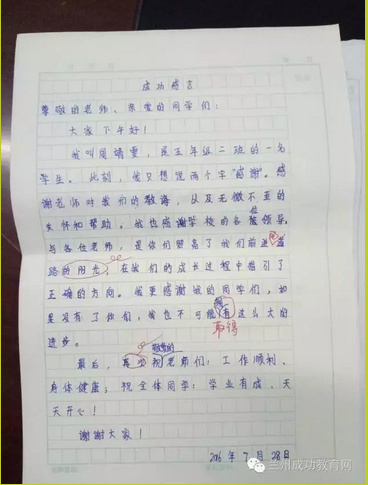 成功感言
尊敬的老师、亲爱的同学们：
大家下午好！
我叫周靖雯，是五年组二班的一名
学生。此刻，我只想说两个字"感谢。感
谢老师对我们的教诲，以及无微不至的
关怀和帮助。我也感谢学校的各位领导，
与各位老师，是你们照亮了我们前进道
路的阳光，在我们的成长过程中指引了
正确的方向。我更感谢我的同学们，如
果没有了你们，我也不可能有这么大的
取得
进步。
敬爱的
最后，祝老师们：工作顺利、
身体健康；祝全体同学：学业有成，天
天开心！
谢谢大家！
2016年7月28日
兰州成功教育网